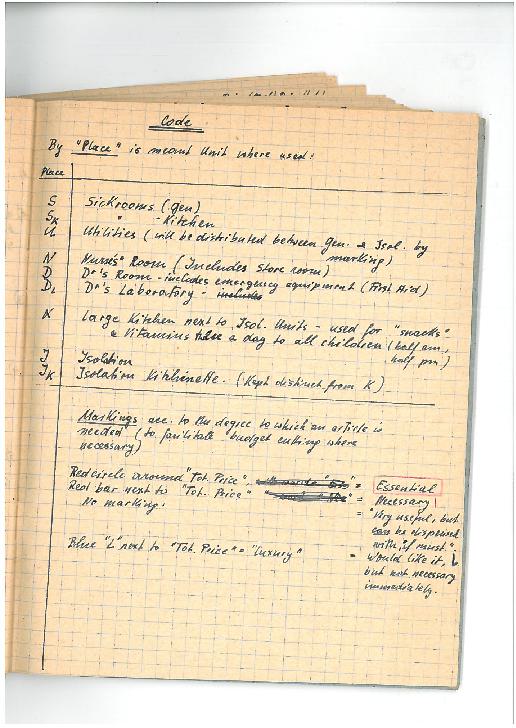 Code
By "Place" is meant Unit where used:
Place
S Sickrooms (gen)
SK " - Kitchen
U Utilities (will be distributed between Gen. & Isol. by
marking)
N Nurses' Room (Includes Store room)
D Dr's Room - includes emergency equipment (First Aid)
DL Dr's Laboratory - includes
K Large Kitchen next to Isol. Units - used for "snacks"
& Vitamins a day to all children (half am,
half pm)
I Isolation
IK Isolation Kitchenette. (Kept distinct from K)
Markings are to the degree to which an article is
needed (to facilitate "budget cutting where
necessary)
Red circle around "Tot. Price" = Essential
Red bar next to "Tot. Price" = Necessary
No marking: = "Very useful, but
can be dispensed
with, if must".
Blue "L" next to "Tot. Price" = "Luxury" = Would like it,
but not necessary
immediately.